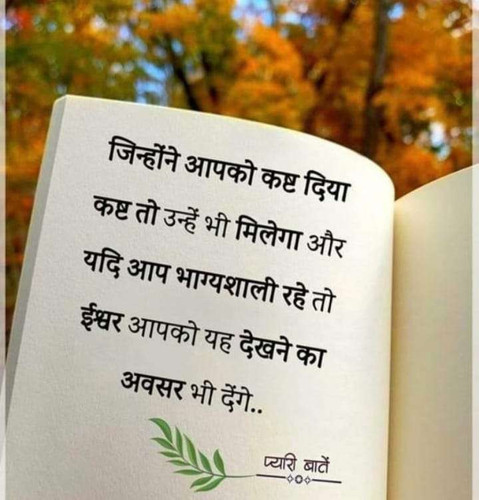 जिन्होंने आपको कष्ट दिया
कष्ट तो उन्हें भी मिलेगा और
यदि आप भाग्यशाली रहे तो
ईश्वर आपको यह देखने का
अवसर भी देंगे..
प्यारी बातें